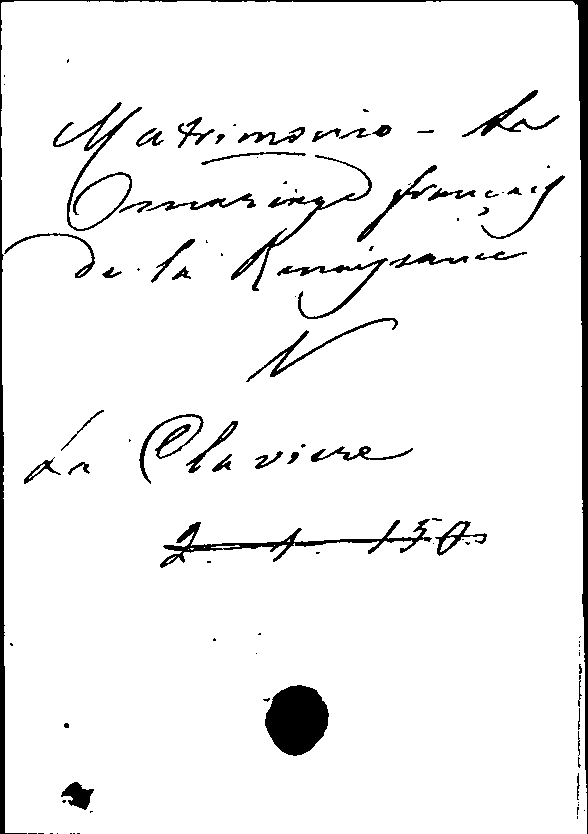 Matrimonio - La
mariage français
de la Renaissance
V
La Claviere
2. 1. 150